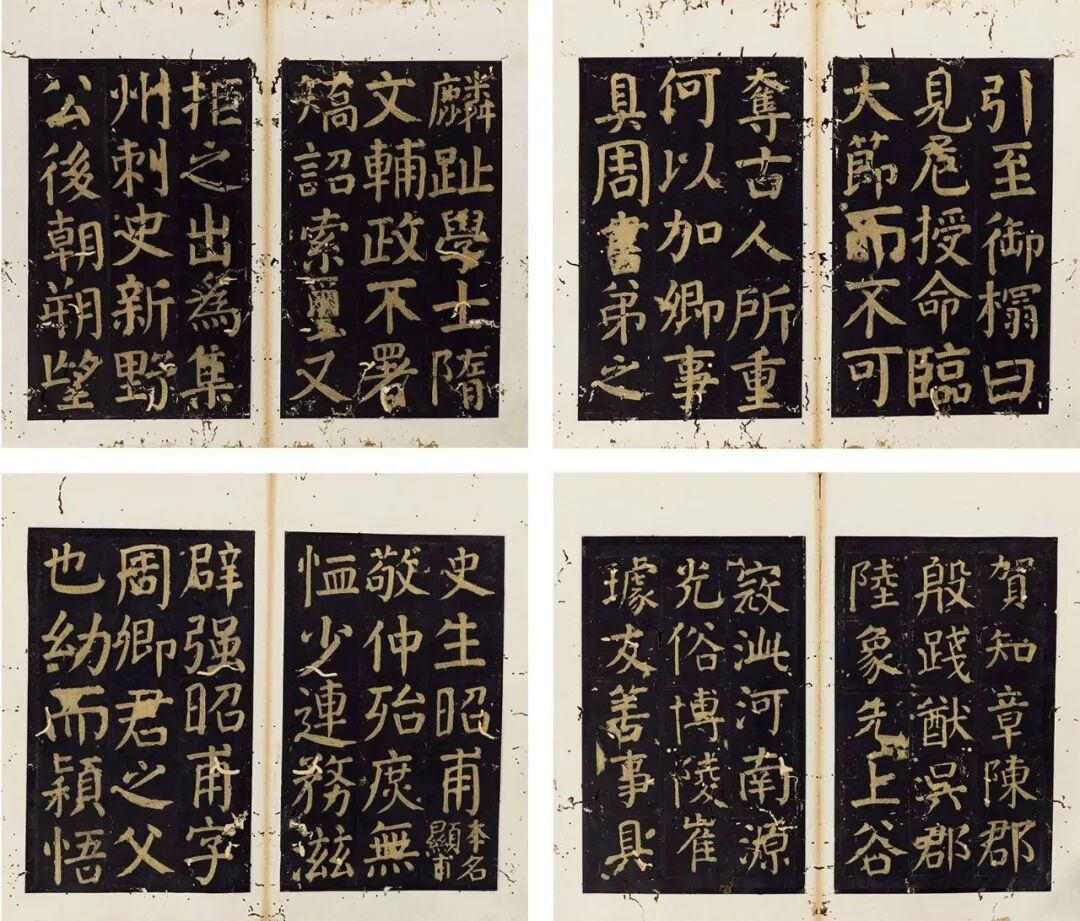 麟趾學士隋
文輔政不署
矯詔索璽又
拒之出為集
州刺史新野
公後朝朔望
引至御榻曰
見危授命臨
大節而不可
奪古人所重
何以加卿事
具周書弟之
史生昭甫本名顯甫
敬仲殆庶無
恤少連務滋
辟强昭甫字
周卿君之父
也幼而穎悟
賀知章陳郡
殷踐猷吳郡
陸象先上谷
寇泚河南源
光俗博陵崔
璩友善事具